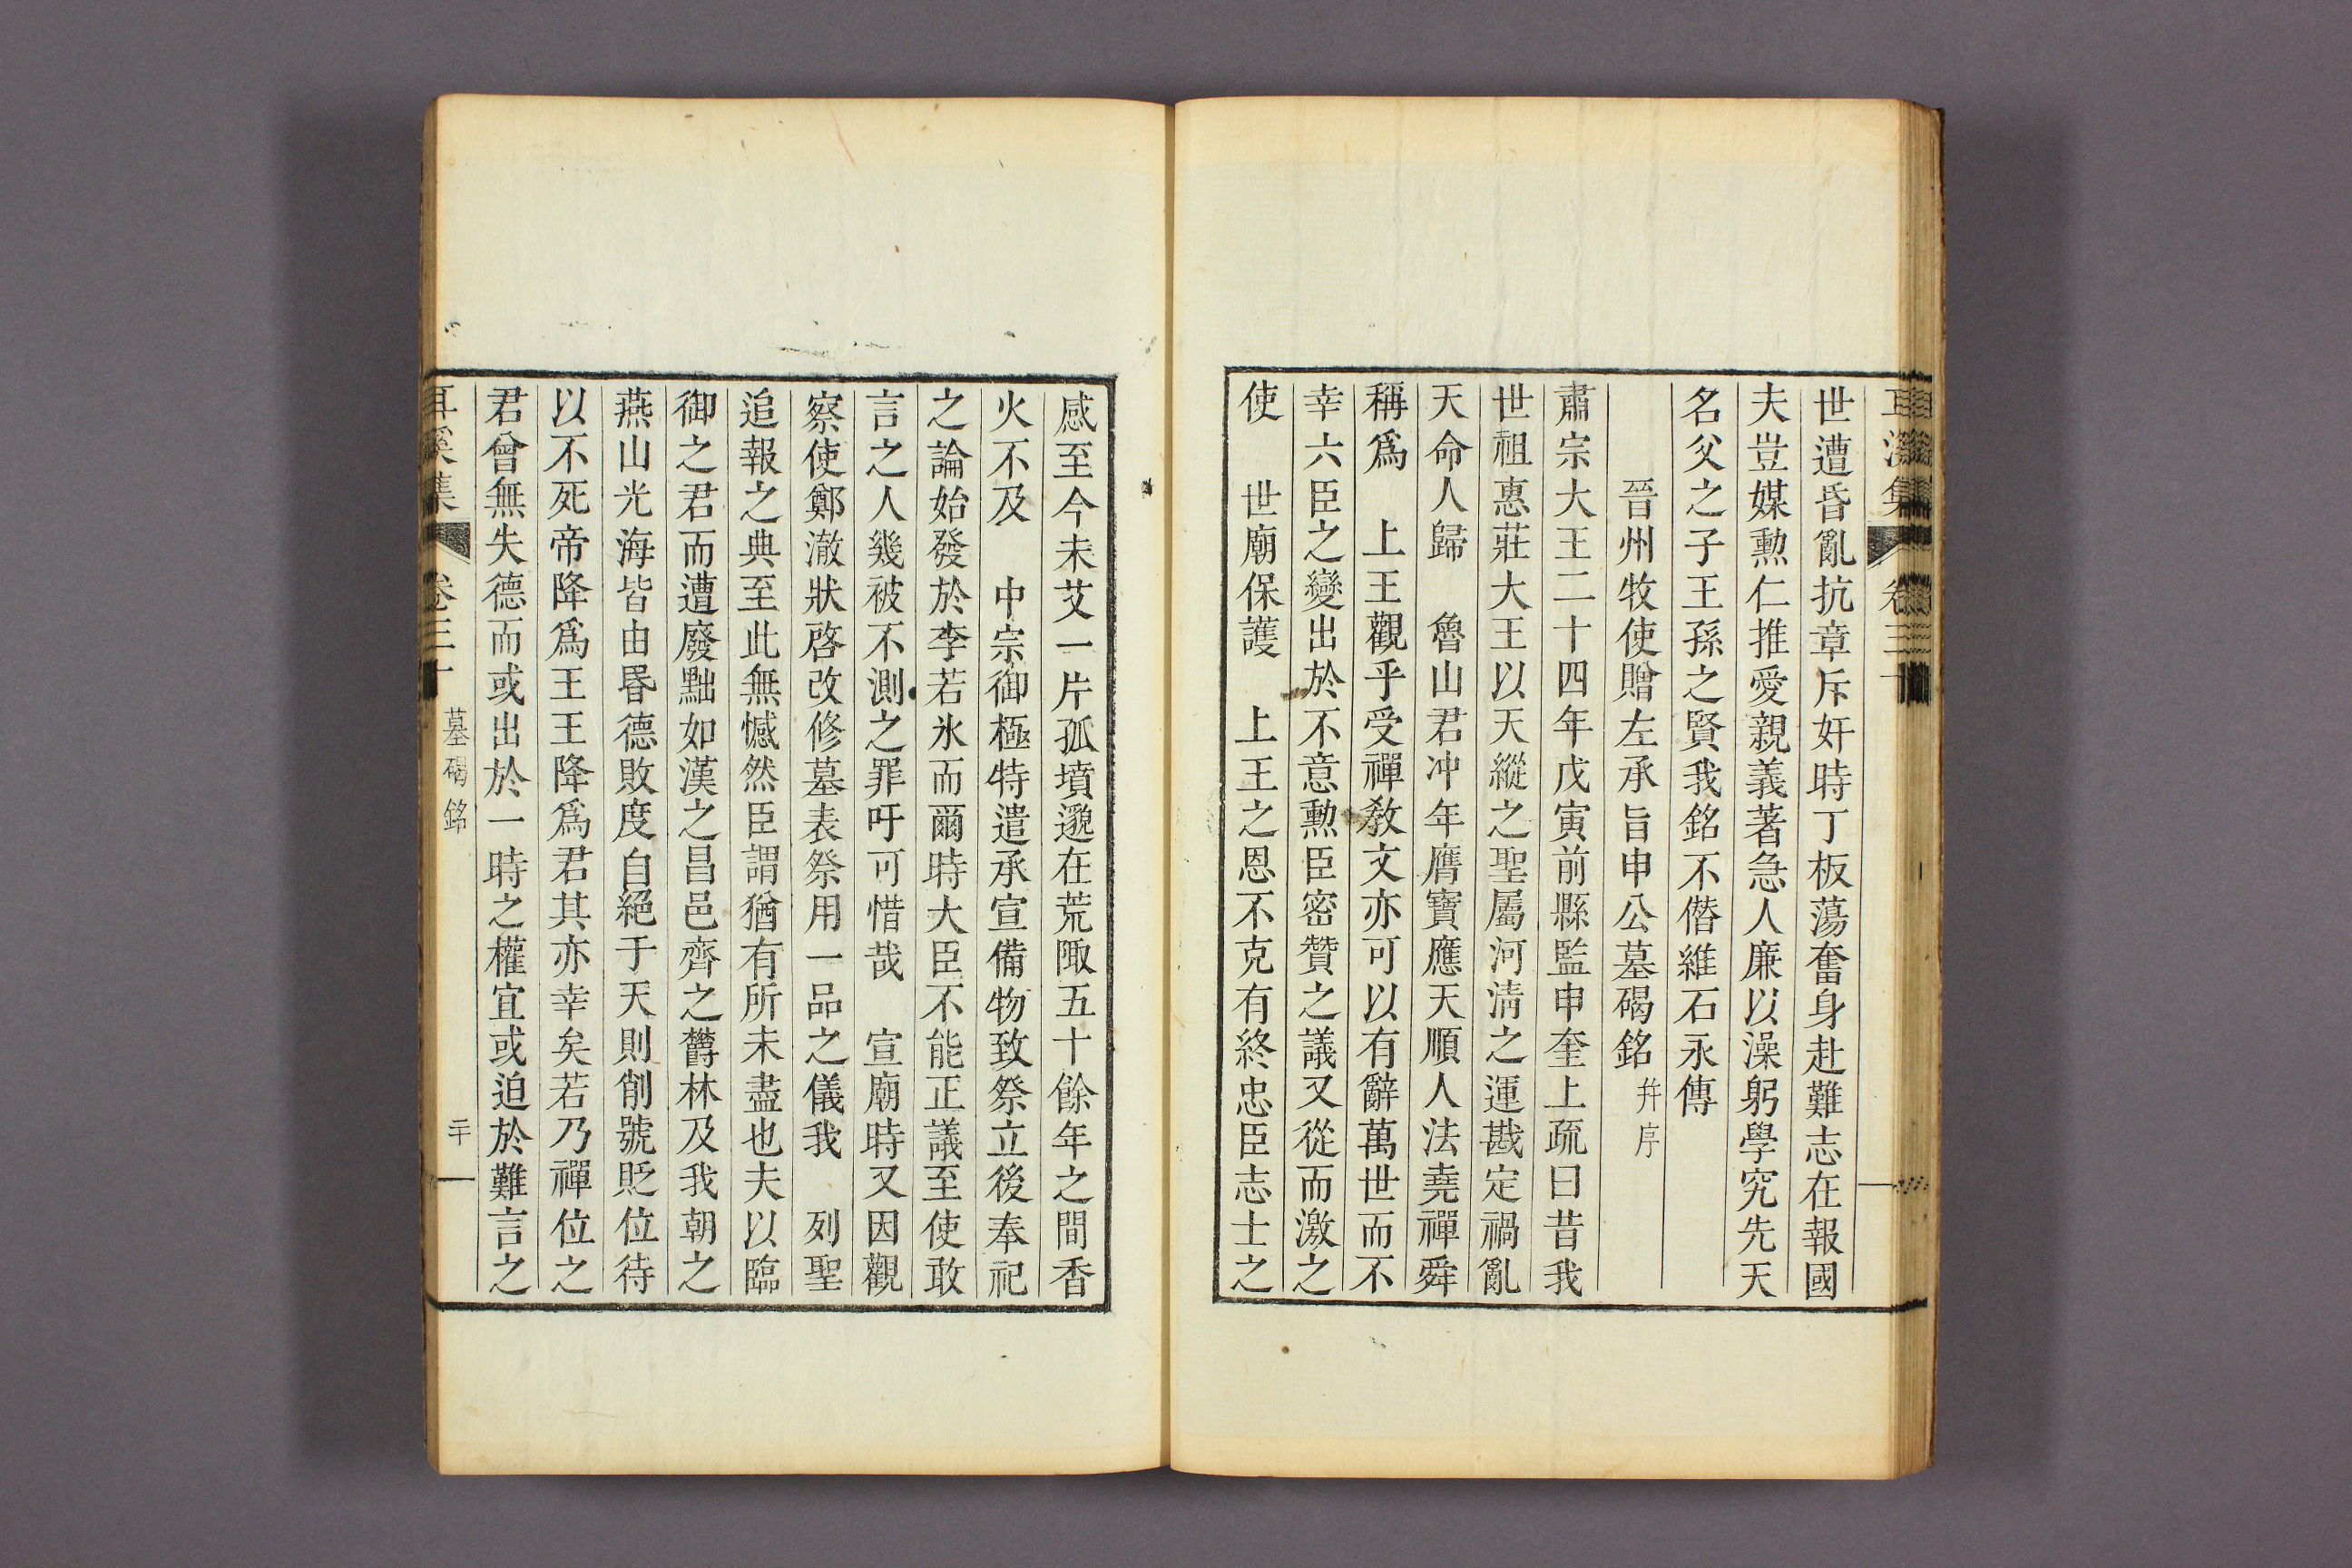 世遭昏亂抗章斥奸時丁板蕩奮身赴難志在報國
夫豈媒勲仁推愛親義著急人廉以澡躬學究先天
名父之子王孫之賢我銘不僭維石永傳
晉州牧使贈左承旨申公墓碣銘 幷序
肅宗大王二十四年戊寅前縣監申奎上疏曰昔我
世祖惠莊大王以天縱之聖屬河清之運戡定禍亂
天命人歸 魯山君冲年膺寶應天順人法堯禪舜
稱爲 上王觀乎受禪敎文亦可以有辭萬世而不
幸六臣之變出於不意勲臣密贊之議又從而激之
使 世廟保護 上王之恩不克有終忠臣志士之
感至今未艾一片孤墳邈在荒陬五十餘年之間香
火不及 中宗御極特遣承宣備物致祭立後奉祀
之論始發於李若氷而爾時大臣不能正議至使敢
言之人幾被不測之罪吁可惜哉 宣廟時又因觀
察使鄭澈狀啓改修墓表祭用一品之儀我 列聖
追報之典至此無憾然臣謂猶有所未盡也夫以臨
御之君而遭廢黜如漢之昌邑齊之欝林及我朝之
燕山光海皆由昬德敗度自絕于天則削號貶位待
以不死帝降爲王王降爲君其亦幸矣若乃禪位之
君曾無失德而或出於一時之權宜或迫於難言之
耳溪集 卷三十 墓碣銘 二十